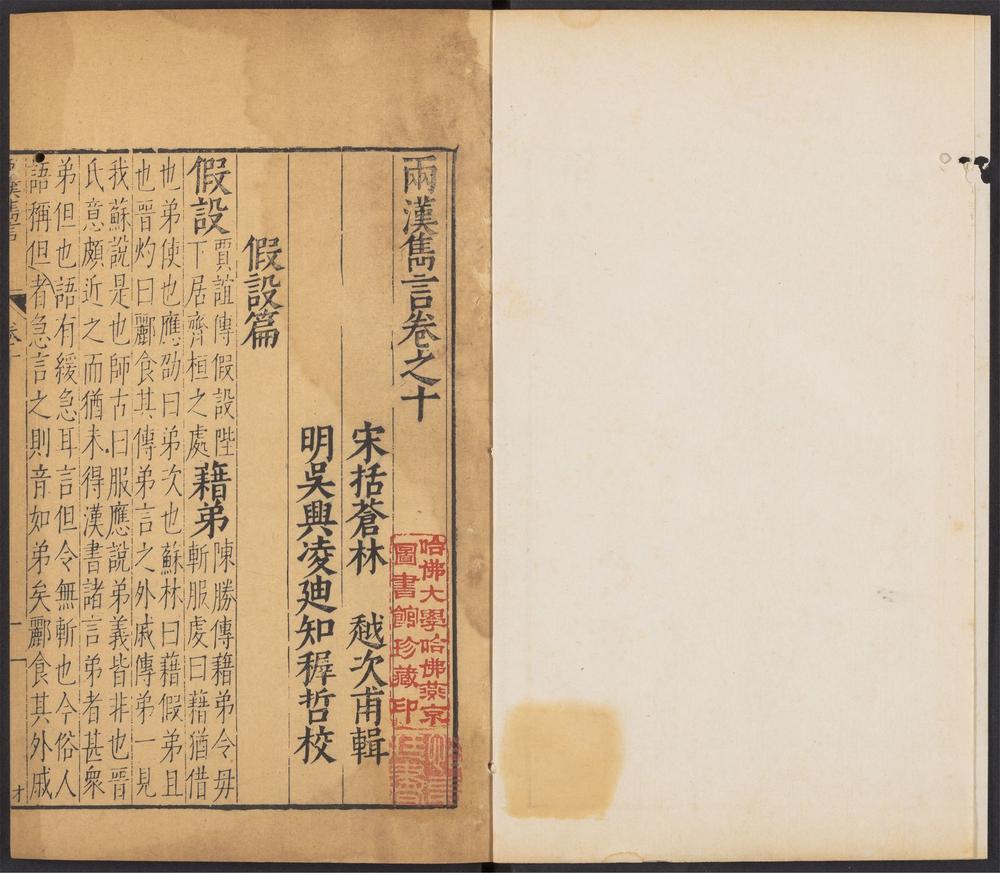 兩漢雋言卷之十
宋括蒼林　越次甫輯
明吳興凌廸知穉哲校
假設篇
假設賈誼傳假設陛下居齊桓之處藉弟陳勝傳藉弟令毋斬服虔曰藉猶借
也弟使也應劭曰弟次也蘇林曰藉假弟且
也晉灼曰酈食其傳弟言之外戚傳弟一見
我蘇說是也師古曰服應說弟義皆非也晉
氏意頗近之而猶未得漢書諸言弟者甚衆
弟但也語有緩急耳言但令無斬也今俗人
語稱但者急言之則音如弟矣酈食其外戚
哈佛大學哈佛燕京
圖書館珍藏印